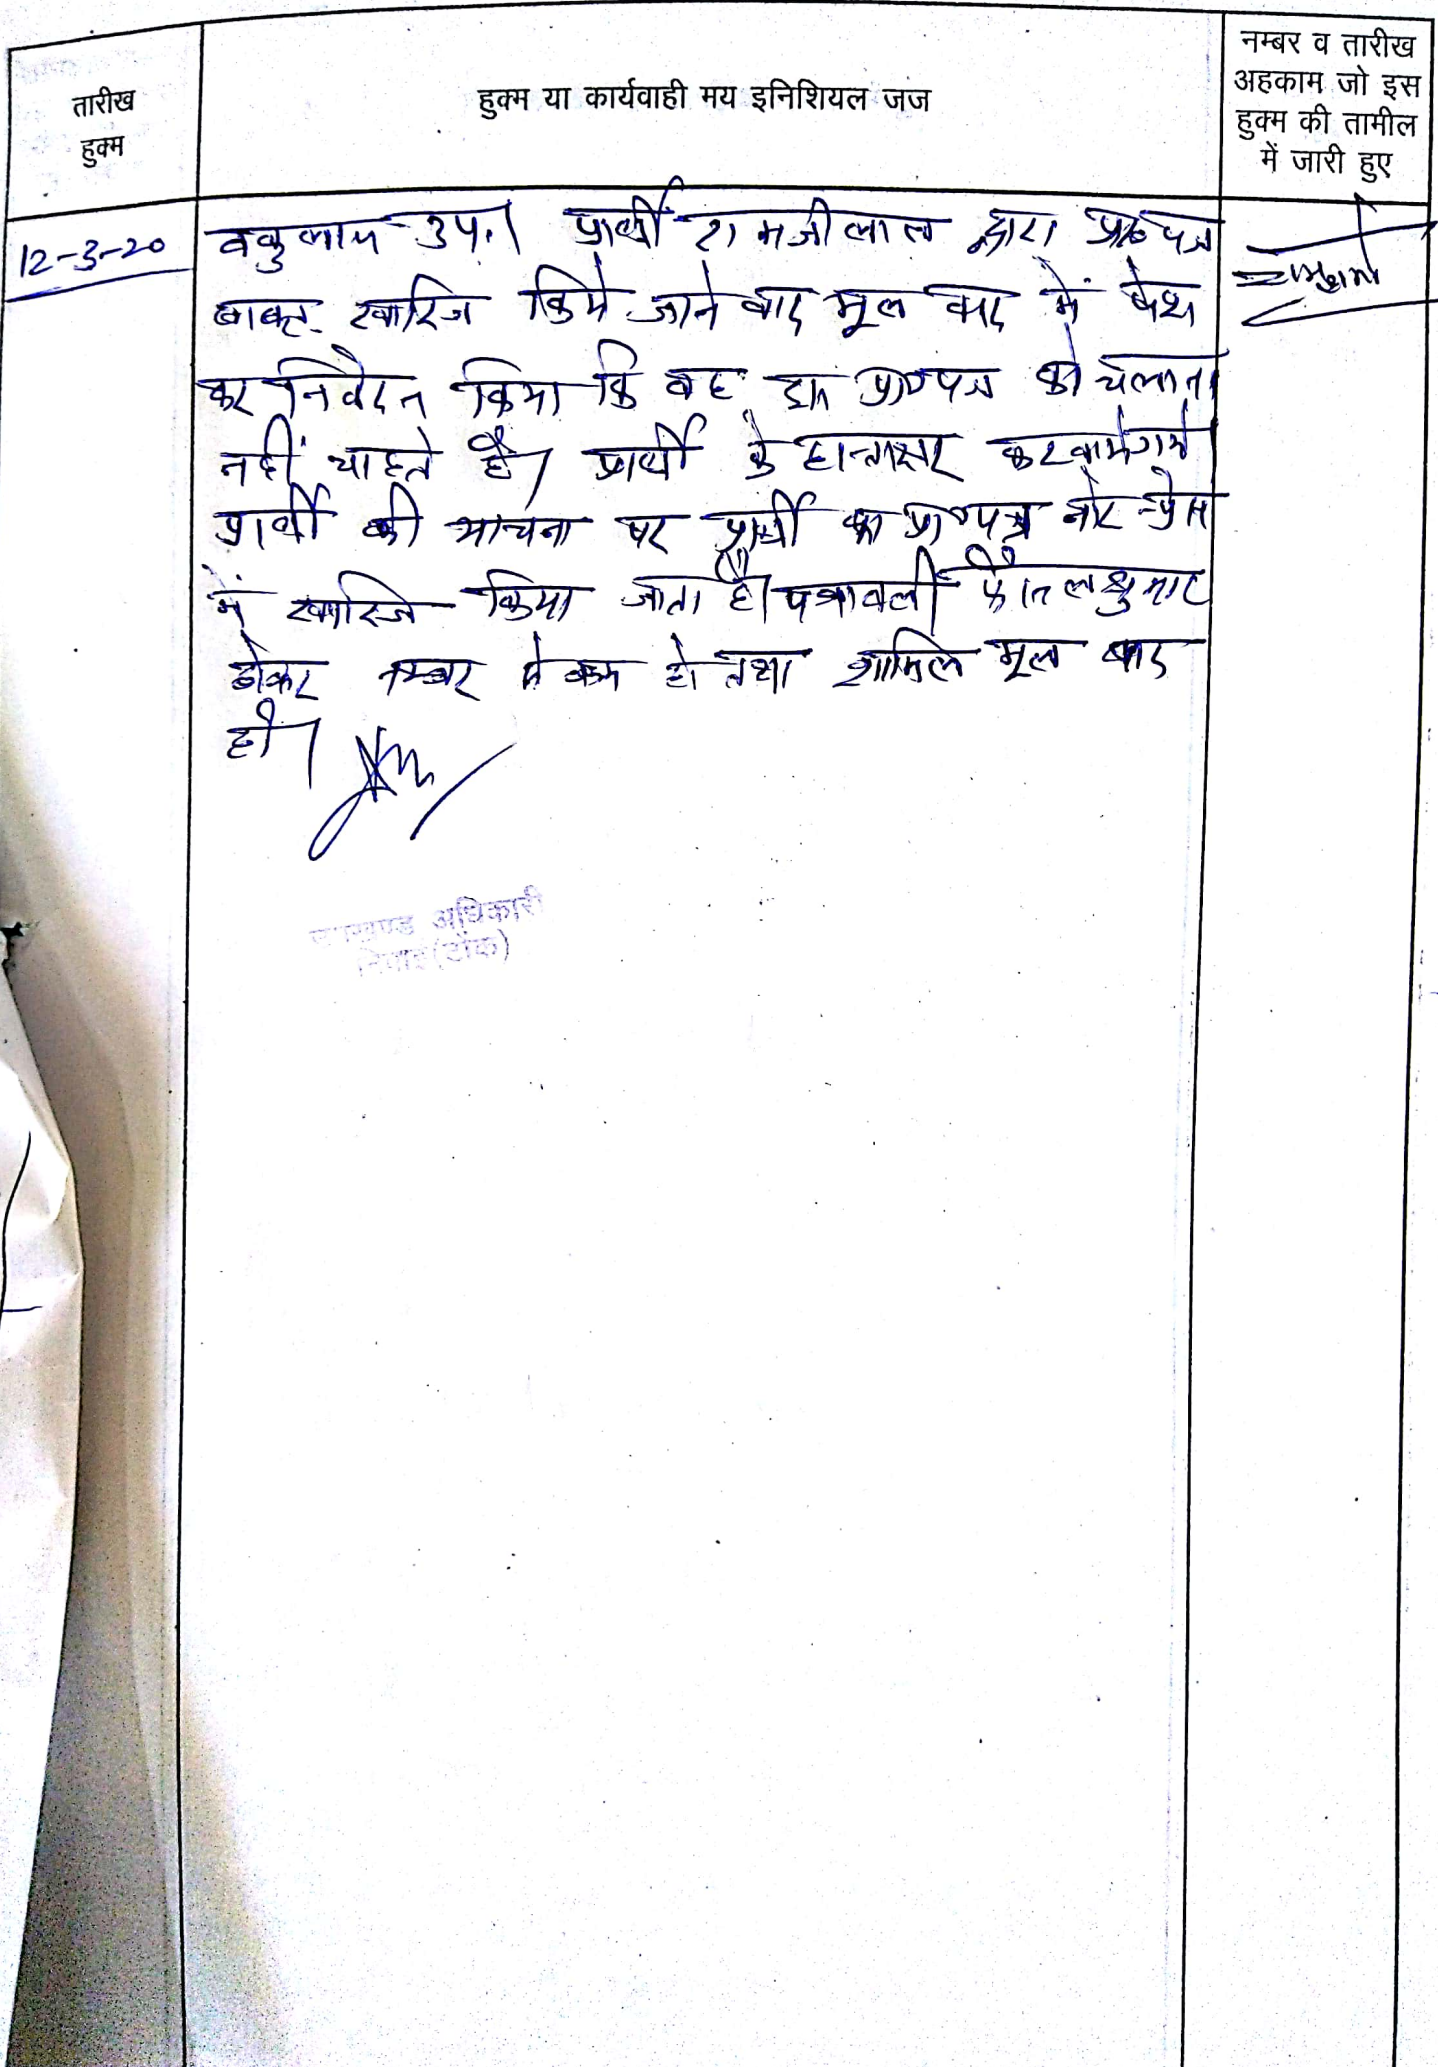 तारीख
हुक्म
हुक्म या कार्यवाही मय इनिशियल जज
नम्बर व तारीख
अहकाम जो इस
हुक्म की तामील
में जारी हुए
12-3-20
वकुलाय उप.। प्रार्थी रामजीलाल द्वारा प्रा० पत्र
बाबत खारिज किये जाने बाद मूल वाद में पेश
कर निवेदन किया कि वह इस प्रा०पत्र को चलाना
नहीं चाहते है। प्रार्थी के हस्ताक्षर करवाये गये
प्रार्थी की याचना पर प्रार्थी का प्रा०पत्र नोट-प्रेस
में खारिज किया जाता है। पत्रावली फैसल शुमार
होकर नम्बर से कम हो तथा शामिल मूल वाद
हो।
उपखण्ड अधिकारी
निवाई (टोंक)